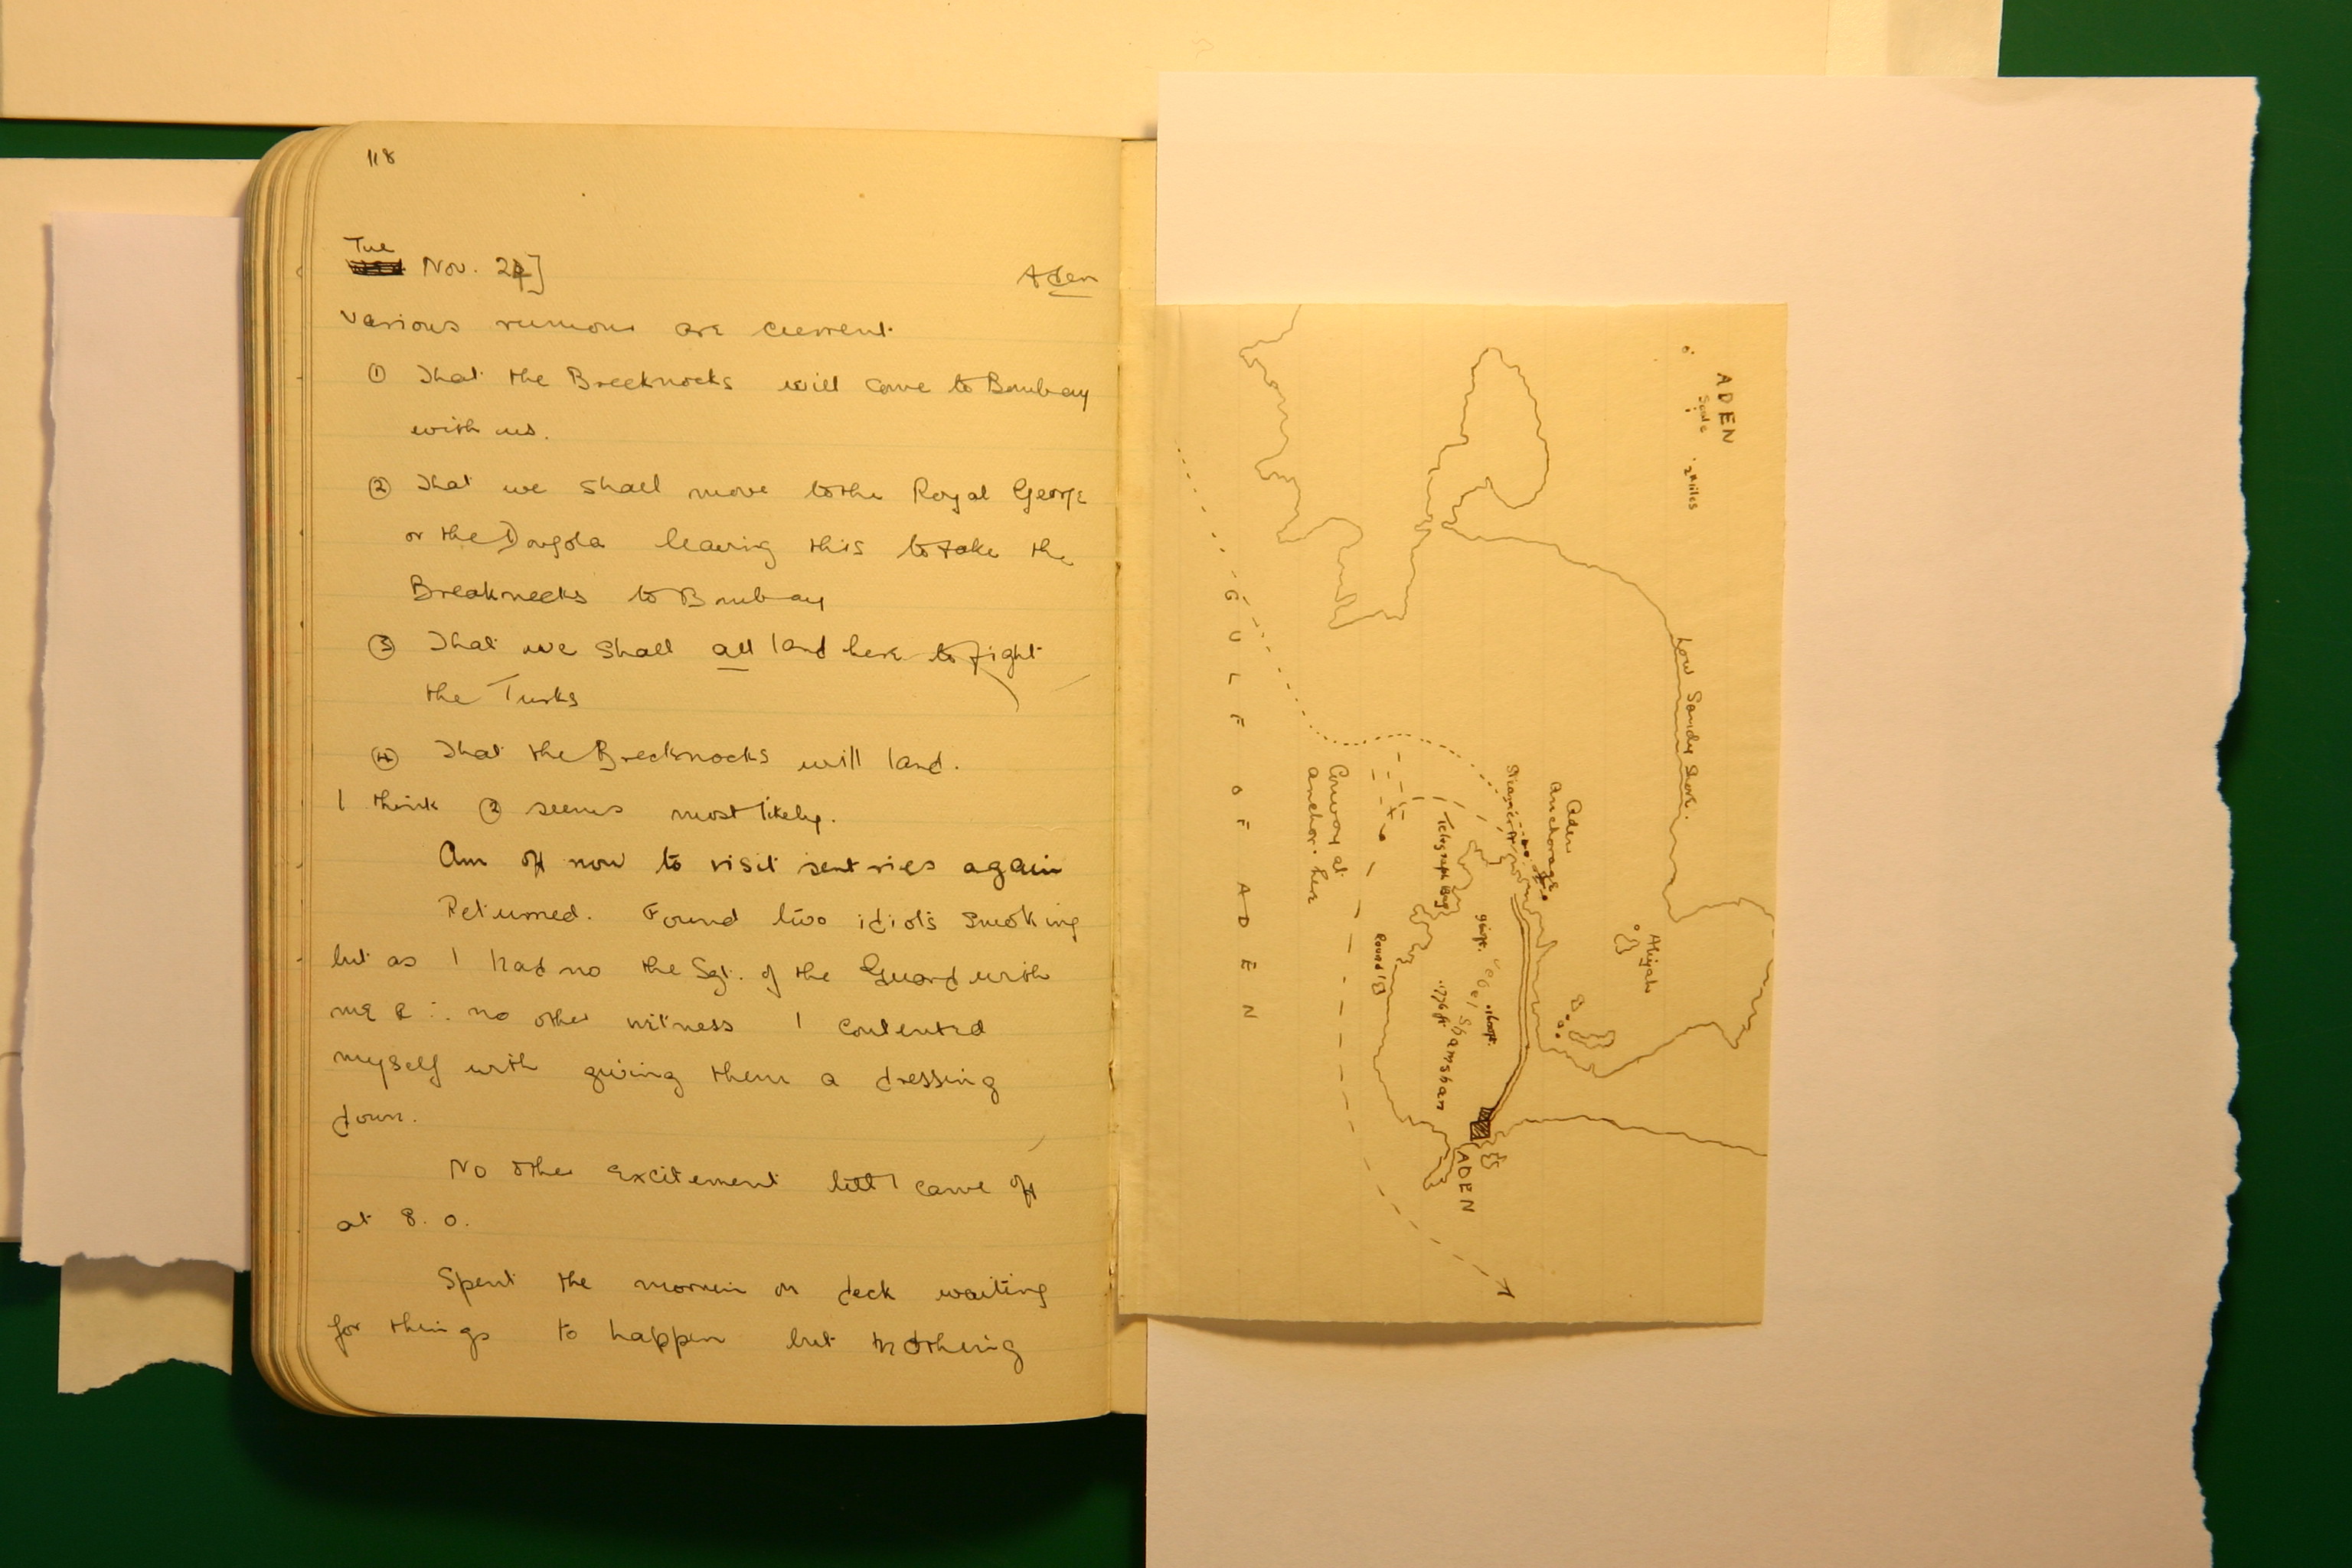 118
Tue Nov. 24]
Aden
Various rumours are current
① That the Brecknocks will come to Bombay
with us.
② That we shall move to the Royal George
or the Dongola leaving this to take the
Breaknecks to Bombay
③ That we shall all land here to fight
the Turks
④ That the Brecknocks will land.
I think ② seems most likely.
Am off now to visit sentries again
Returned. Found two idiots smoking
but as I had no the Sgt. of the Guard with
me & ∴ no other witness I contented
myself with giving them a dressing
down.
No other excitement till I came off
at 8. 0.
Spent the mornin on deck waiting
for things to happen but nothing
ADEN
Scale
2 Miles
Low Sandy Shore.
Aden
anchorage
Steamer Pt
Aliyah
Telegraph Bay
Convoy at
anchor here
Round I
Jebel Shamshan
1776 ft
ADEN
GULF OF ADEN